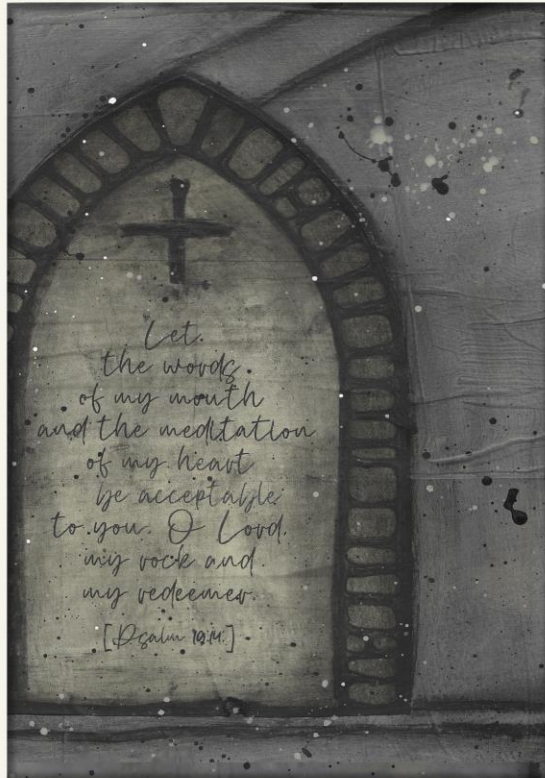 Let
the words
of my mouth
and the meditation
of my heart
be acceptable
to you. O Lord.
my rock and
my redeemer.
[Psalm 19:14]